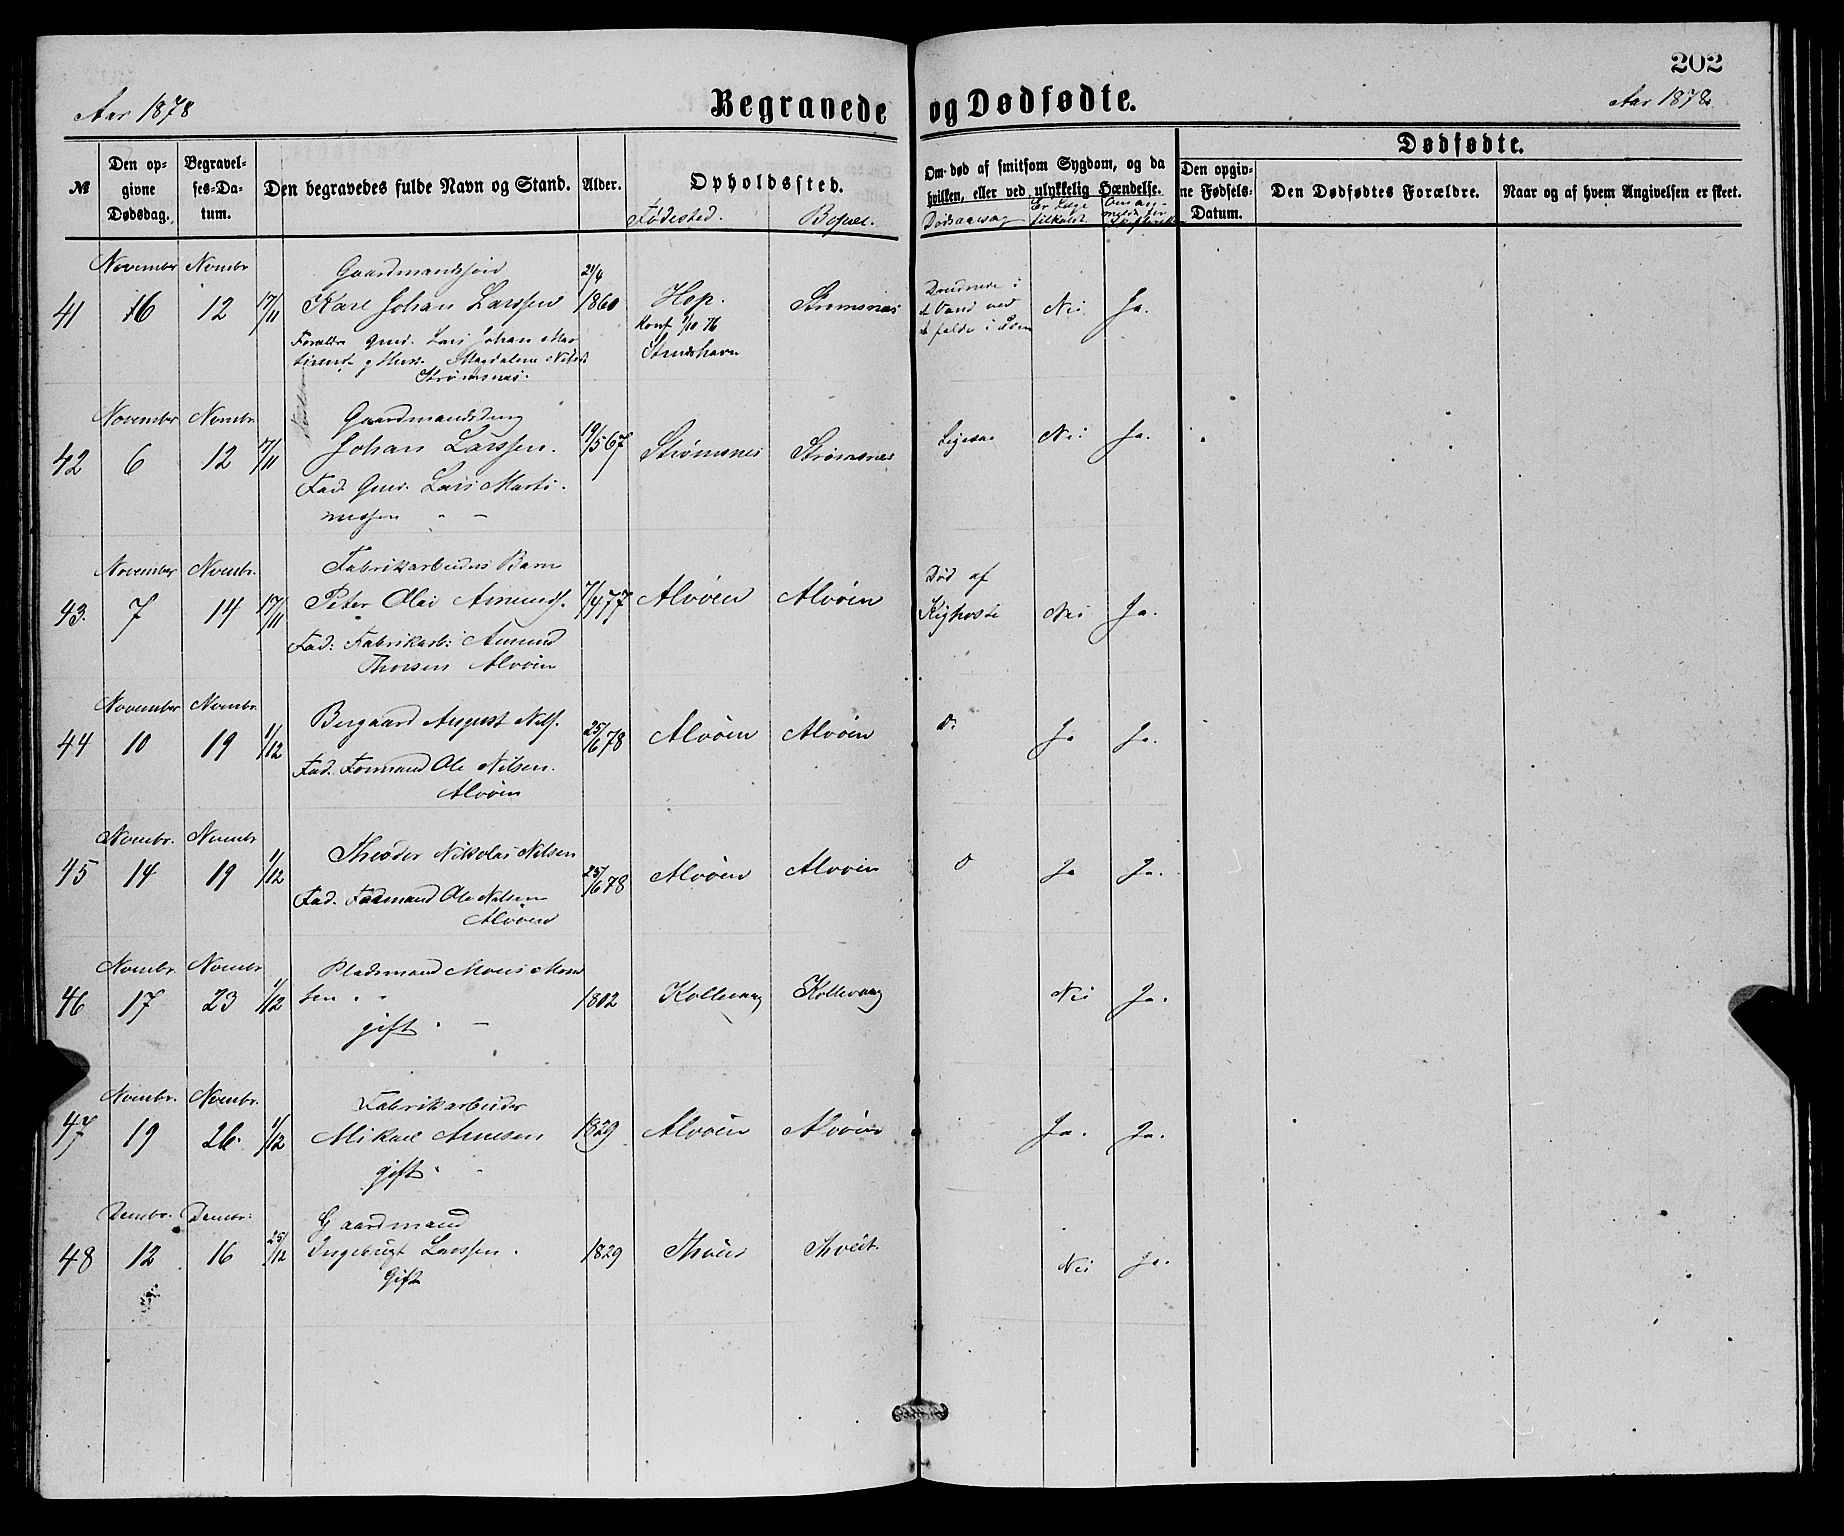 202
Aar 1878 Begravede og Dødfødte. Aar 1878
№ Den opgivne Dødsdag. Begravelses-Datum. Den begravedes fulde Navn og Stand. Alder. Opholdssted. Om død af smitsom Sygdom, og da hvilken, eller ved ulykkelig Hændelse. Dødfødte.
Den opgivne Fødsels-Datum. Den Dødfødtes Forældre. Naar og af hvem Angivelsen er skeet.
Fødested. Bopæl. Dødsaarsag Er Læge tilkaldt
November Novembr Gaardmandssøn 21/4
41 16 12 17/11 Karl Johan Larssen 1860 Hop. Strømsnæs Druknede i Nei Ja.
Vand ved
Forældre Gmd. Lars Johan Mar
Magdalena
Strømsnes.
November Novembr. Gaardmandsdreng
42 6 12 17/11 Johan Larssen. 19/5 67 Strømsnes Strømsnes Ligesaa Nei Ja.
Fad. Gmd. Lars Marti-
nussen
November Novembr. Fabrikarbeiders Barn
43. 7 14 17/11 Peter Olai Amunds. 7/4 77 Alvøen Alvøen Død af Kighoste Nei Ja.
Fad: Fabrikarb: Amund
Thorsen Alvøen
November Novembr.
44 10 19 1/12 Bergaard August Nils. 25/6 78 Alvøen Alvøen Do Ja Ja.
Fad. Formand Ole Nilsen.
Alvøen
Novembr. Novembr
45 14 19 1/12 Theodor Nikolai Nilsen 25/6 78 Alvøen Alvøen Do Ja Ja.
Fad. Formand Ole Nilsen
Alvøen
Novembr. Novembr Pladsmand Mons Mon
46 17 23 1/12 sen 1802 Kollevaag Kollevaag Nei Ja.
gift
Novembr. Novembr. Fabrikarbeider
47 19 26. 1/12 Mikael Arnesen 1829 Alvøen Alvøen Ja. Ja.
gift
Decembr. Decembr. Gaardmand
48 12 16 25/12 Ingebrigt Larssen. 1829 Thveit. Nei Ja.
Gift